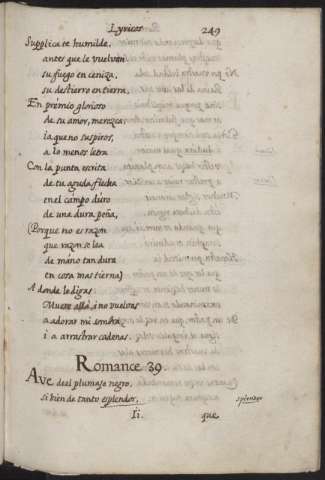 Lyricos 249
Supplicate humilde,
antes que le vuelvan
su fuego en ceniza,
su destierro en tierra,
En premio glorioso
de su amor, merezca
la que no suspiros,
a lo menos letra
Con la punta escrita
de tu aguda flecha
en el campo duro
de una dura peña,
(Porque no es razon
que razon se lea
de mano tan dura
en cosa mas tierna)
A donde lo digas:
Muere allà, i no vuelvas
a adorar mi sombra
i a arrastrar cadenas.
Romance 39.
Ave de al plumaje negro,
si bien de tanto esplendor, splendor
Ii. que